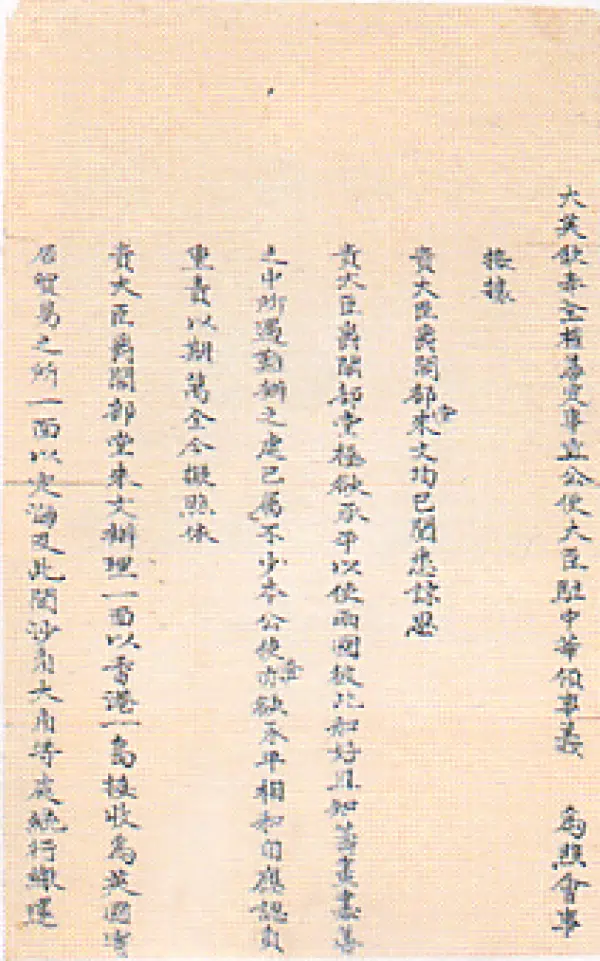 大英欽奉全權善定事宜公使大臣駐中華領事義 為照會事
接據
貴大臣爵閣部堂來文均已閱悉諒思
貴大臣爵閣部堂極欲承平以使兩國彼此和好且知籌畫盡善
之中所遇難辦之處已屬不少本公使亦欲承平相和自應認真
重責以期萬全今擬照依
貴大臣爵閣部堂來文辦理一面以香港一島接收為英國寄
居貿易之所一面以定海及此間沙角大角等處統行繳還